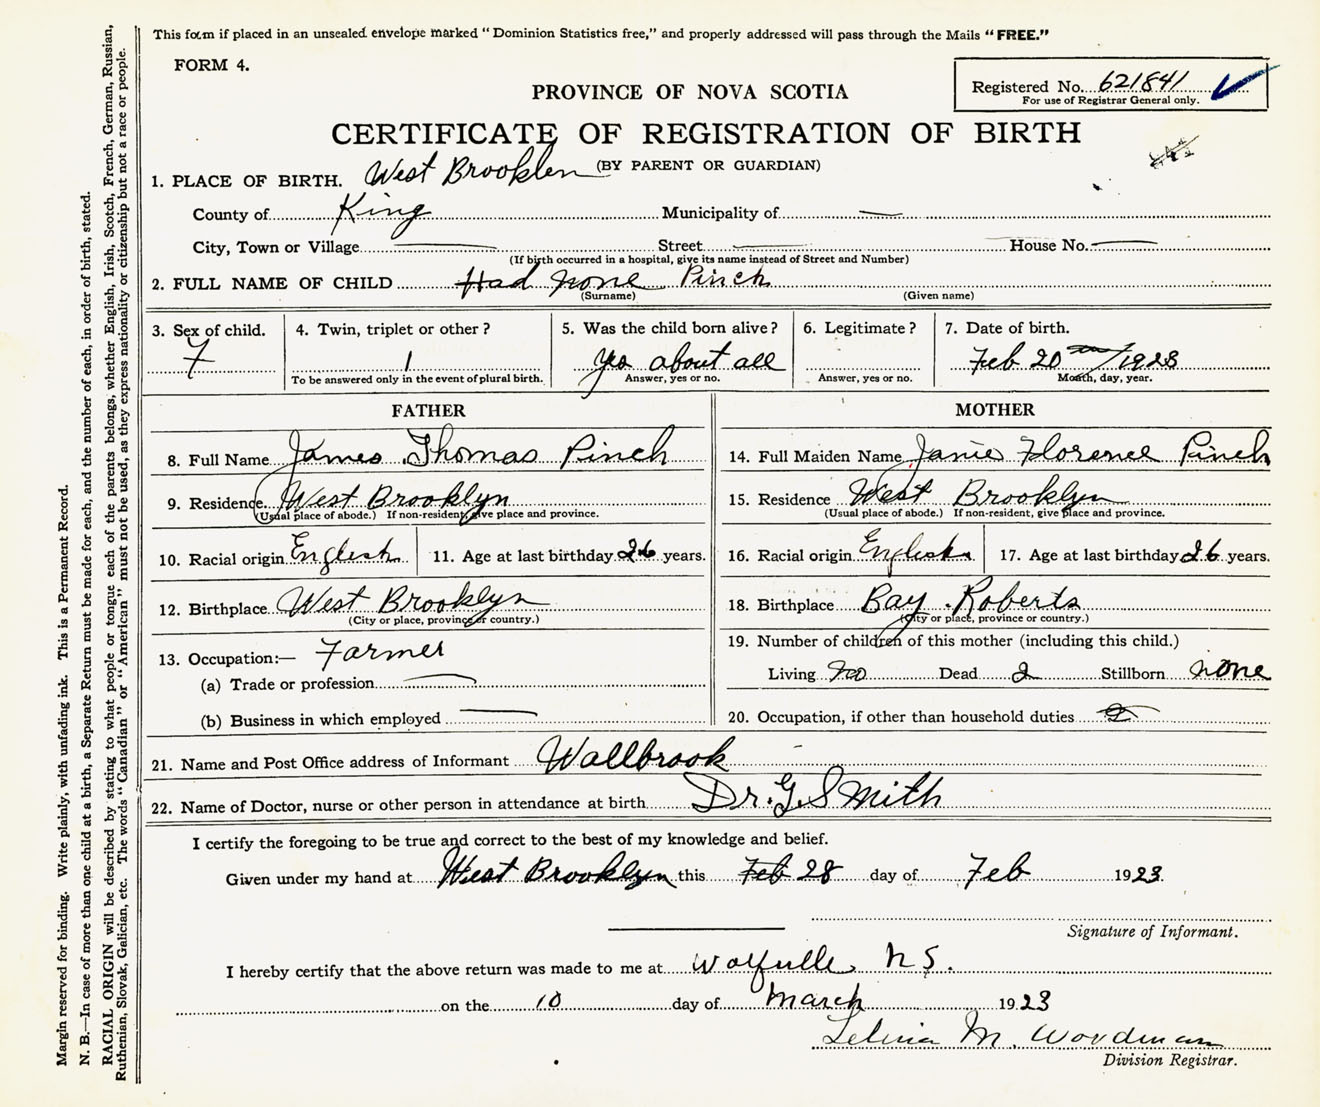 This form if placed in an unsealed envelope marked "Dominion Statistics free," and properly addressed will pass through the Mails "FREE."
FORM 4.
Registered No. 621841
For use of Registrar General only.
PROVINCE OF NOVA SCOTIA
CERTIFICATE OF REGISTRATION OF BIRTH
(BY PARENT OR GUARDIAN)
1. PLACE OF BIRTH. West Brooklen
County of King Municipality of —
City, Town or Village — Street — House No. —
(If birth occurred in a hospital, give its name instead of Street and Number)
2. FULL NAME OF CHILD Had none Pinch
(Surname) (Given name)
3. Sex of child. 4. Twin, triplet or other? 5. Was the child born alive? 6. Legitimate? 7. Date of birth.
F 1 yes about all Feb 20 1923
To be answered only in the event of plural birth. Answer, yes or no. Answer, yes or no. Month, day, year.
FATHER
8. Full Name James Thomas Pinch
9. Residence West Brooklyn
(Usual place of abode.) If non-resident, give place and province.
10. Racial origin English 11. Age at last birthday 26 years.
12. Birthplace West Brooklyn
(City or place, province or country.)
13. Occupation:— Farmer
(a) Trade or profession —
(b) Business in which employed —
MOTHER
14. Full Maiden Name Janie Florence Pinch
15. Residence West Brooklyn
(Usual place of abode.) If non-resident, give place and province.
16. Racial origin English 17. Age at last birthday 26 years.
18. Birthplace Bay Roberts
(City or place, province or country.)
19. Number of children of this mother (including this child.)
Living Dead 2 Stillborn none
20. Occupation, if other than household duties
21. Name and Post Office address of Informant Wallbrook
22. Name of Doctor, nurse or other person in attendance at birth Dr. G. Smith
I certify the foregoing to be true and correct to the best of my knowledge and belief.
Given under my hand at West Brooklyn this Feb 28 day of Feb 1923.
Signature of Informant.
I hereby certify that the above return was made to me at Wolfville N S.
on the 10 day of March 1923
M. Woodman
Division Registrar.
Margin reserved for binding. Write plainly, with unfading ink. This is a Permanent Record.
N. B.—In case of more than one child at a birth, a Separate Return must be made for each, and the number of each, in order of birth, stated.
RACIAL ORIGIN will be described by stating to what people or tongue each of the parents belongs, whether English, Irish, Scotch, French, German, Russian,
Ruthenian, Slovak, Galician, etc. The words "Canadian" or "American" must not be used, as they express nationality or citizenship but not a race or people.